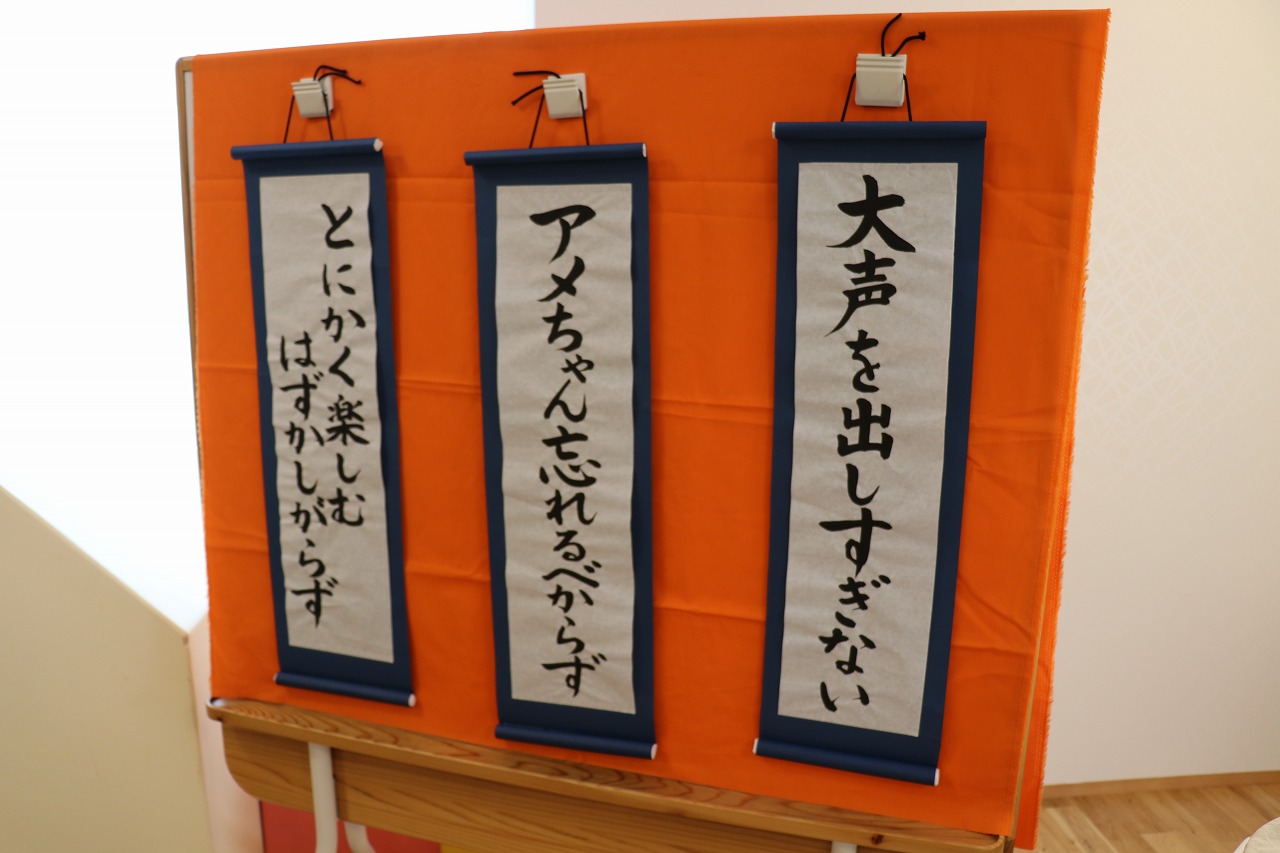 大声を出しすぎない
アメちゃん忘れるべからず
とにかく楽しむ
はずかしがらず